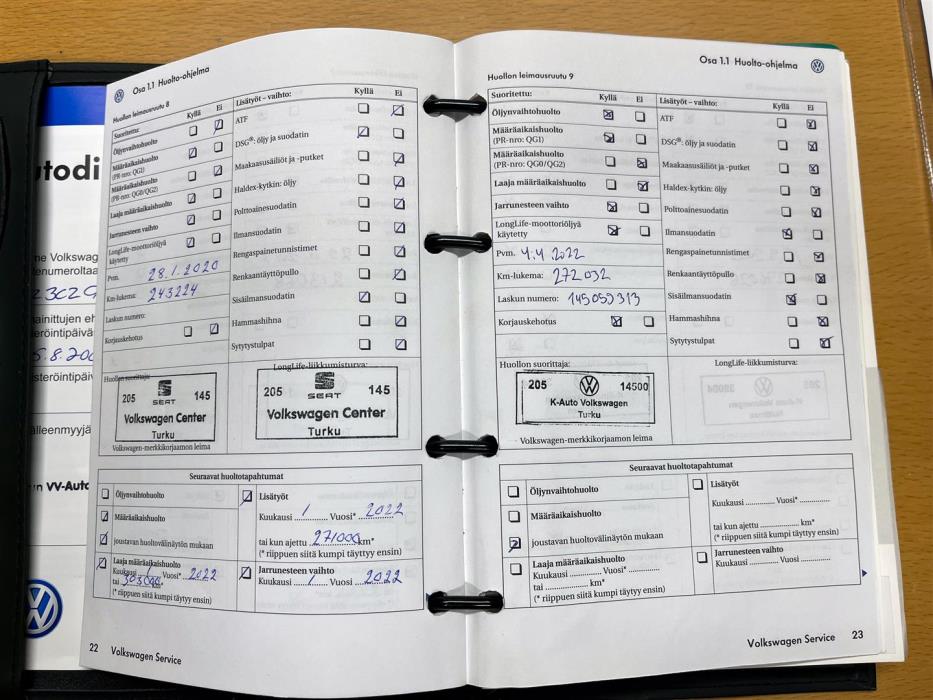 Osa 1.1 Huolto-ohjelma
Huollon leimausruutu 8
Suoritettu:
Kyllä Ei
Öljynvaihtohuolto
Määräaikaishuolto
(PR-nro: QG1)
Määräaikaishuolto
(PR-nro: QG0/QG2)
Laaja määräaikaishuolto
Jarrunesteen vaihto
LongLife-moottoriöljyä
käytetty
Pvm. 28.1.2020
Km-lukema: 243224
Laskun numero:
Korjauskehotus
Lisätyöt – vaihto:
Kyllä Ei
ATF
DSG®: öljy ja suodatin
Maakaasusäiliöt ja -putket
Haldex-kytkin: öljy
Polttoainesuodatin
Ilmansuodatin
Rengaspainetunnistimet
Renkaantäyttöpullo
Sisäilmansuodatin
Hammashihna
Sytytystulpat
Huollon suorittaja:
205 SEAT 145
Volkswagen Center
Turku
Volkswagen-merkkikorjaamon leima
LongLife-liikkumisturva:
205 SEAT 145
Volkswagen Center
Turku
Seuraavat huoltotapahtumat
Öljynvaihtohuolto
Määräaikaishuolto
joustavan huoltovälinäytön mukaan
Laaja määräaikaishuolto
Kuukausi 1 Vuosi* 2022
tai 303000
(* riippuen siitä kumpi täytyy ensin)
Lisätyöt
Kuukausi 1 Vuosi* 2022
tai kun ajettu 271000 km*
(* riippuen siitä kumpi täyttyy ensin)
Jarrunesteen vaihto
Kuukausi 1 Vuosi 2022
22 Volkswagen Service
Osa 1.1 Huolto-ohjelma
Huollon leimausruutu 9
Suoritettu:
Kyllä Ei
Öljynvaihtohuolto
Määräaikaishuolto
(PR-nro: QG1)
Määräaikaishuolto
(PR-nro: QG0/QG2)
Laaja määräaikaishuolto
Jarrunesteen vaihto
LongLife-moottoriöljyä
käytetty
Pvm. 4.4.2022
Km-lukema: 272032
Laskun numero: 145059313
Korjauskehotus
Lisätyöt – vaihto:
Kyllä Ei
ATF
DSG®: öljy ja suodatin
Maakaasusäiliöt ja -putket
Haldex-kytkin: öljy
Polttoainesuodatin
Ilmansuodatin
Rengaspainetunnistimet
Renkaantäyttöpullo
Sisäilmansuodatin
Hammashihna
Sytytystulpat
Huollon suorittaja:
205 14500
K-Auto Volkswagen
Turku
Volkswagen-merkkikorjaamon leima
LongLife-liikkumisturva:
Seuraavat huoltotapahtumat
Öljynvaihtohuolto
Määräaikaishuolto
joustavan huoltovälinäytön mukaan
Laaja määräaikaishuolto
Kuukausi ............ Vuosi* ............
tai ............ km*
(* riippuen siitä kumpi täytyy ensin)
Lisätyöt
Kuukausi ............ Vuosi* ............
tai kun ajettu ............ km*
(* riippuen siitä kumpi täyttyy ensin)
Jarrunesteen vaihto
Kuukausi ............ Vuosi ............
Volkswagen Service 23